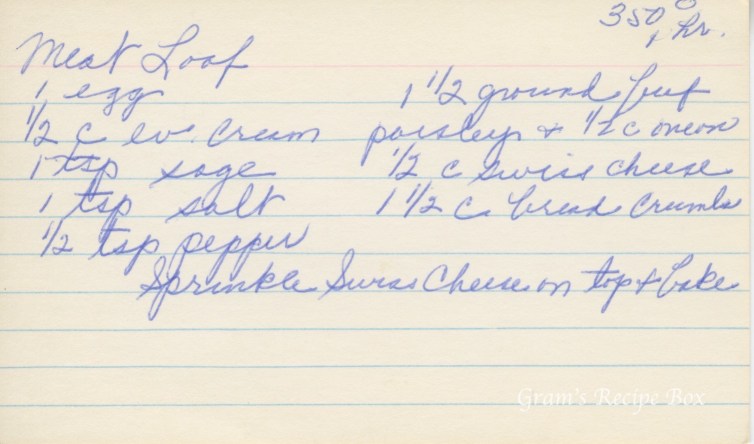 350° 1 hr.
Meat Loaf
1 egg 1 1/2 ground beef
1/2 c ev. cream parsley + 1/2 c onion
1 tsp sage 1/2 c swiss cheese
1 tsp salt 1 1/2 c. bread crumbs
1/2 tsp pepper
Sprinkle Swiss Cheese on top + bake
Gram's Recipe Box